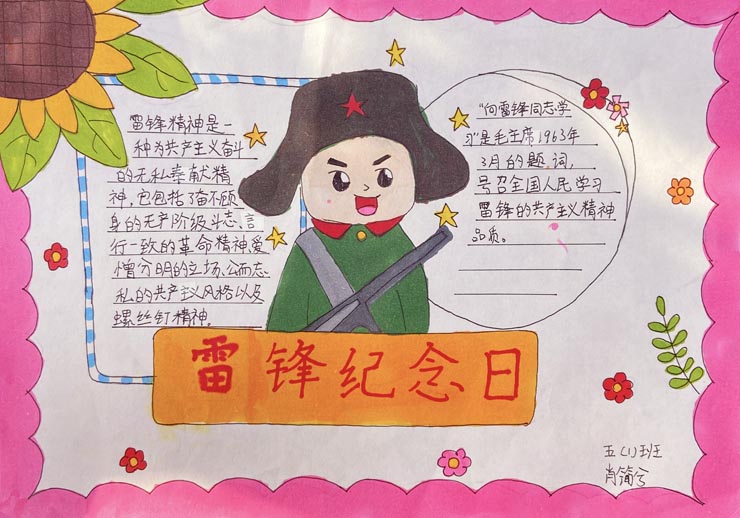 雷锋精神是一
种为共产主义奋斗
的无私奉献精
神,它包括了奋不顾
身的无产阶级斗志、言
行一致的革命精神、爱
憎分明的立场、公而忘
私的共产主义风格以及
螺丝钉精神。
"向雷锋同志学
习"是毛主席1963年
3月的题词,
号召全国人民学习
雷锋的共产主义精神
品质。
雷锋纪念日
五(1)班
肖简兮